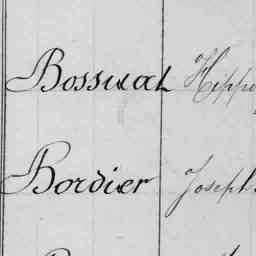 Bossuat Hippo
Bordier Joseph